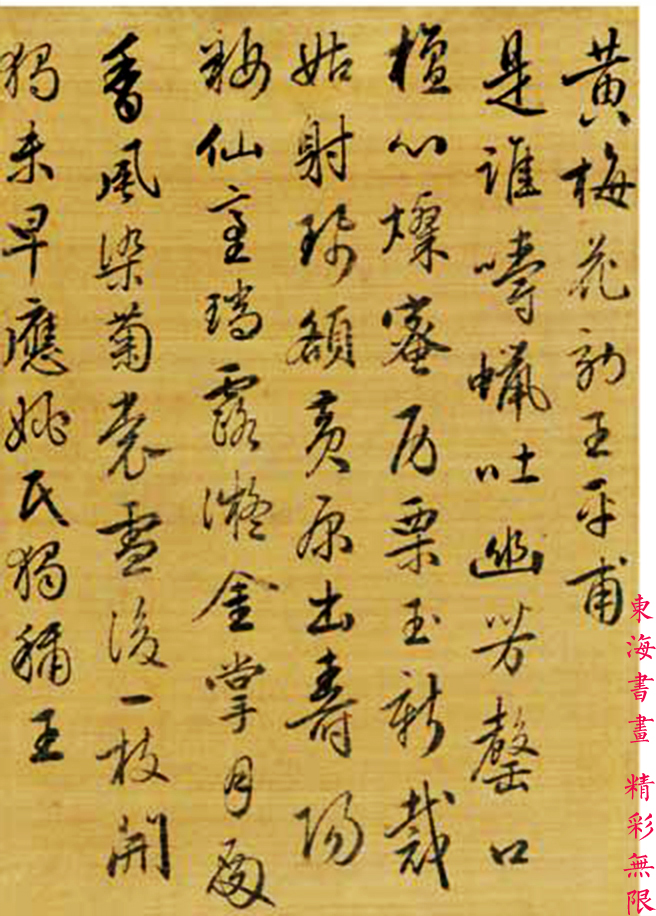 黄梅花初王平甫
是誰嚼蠟吐幽芳磬口
檀心燦蜜房栗玉新裁
姑射珎額黄原出壽陽
籹仙室瑞露凝金掌月
香風染菊裳雪後一枝開
獨未早應姚氏獨稱王
東海書畫 精彩無限